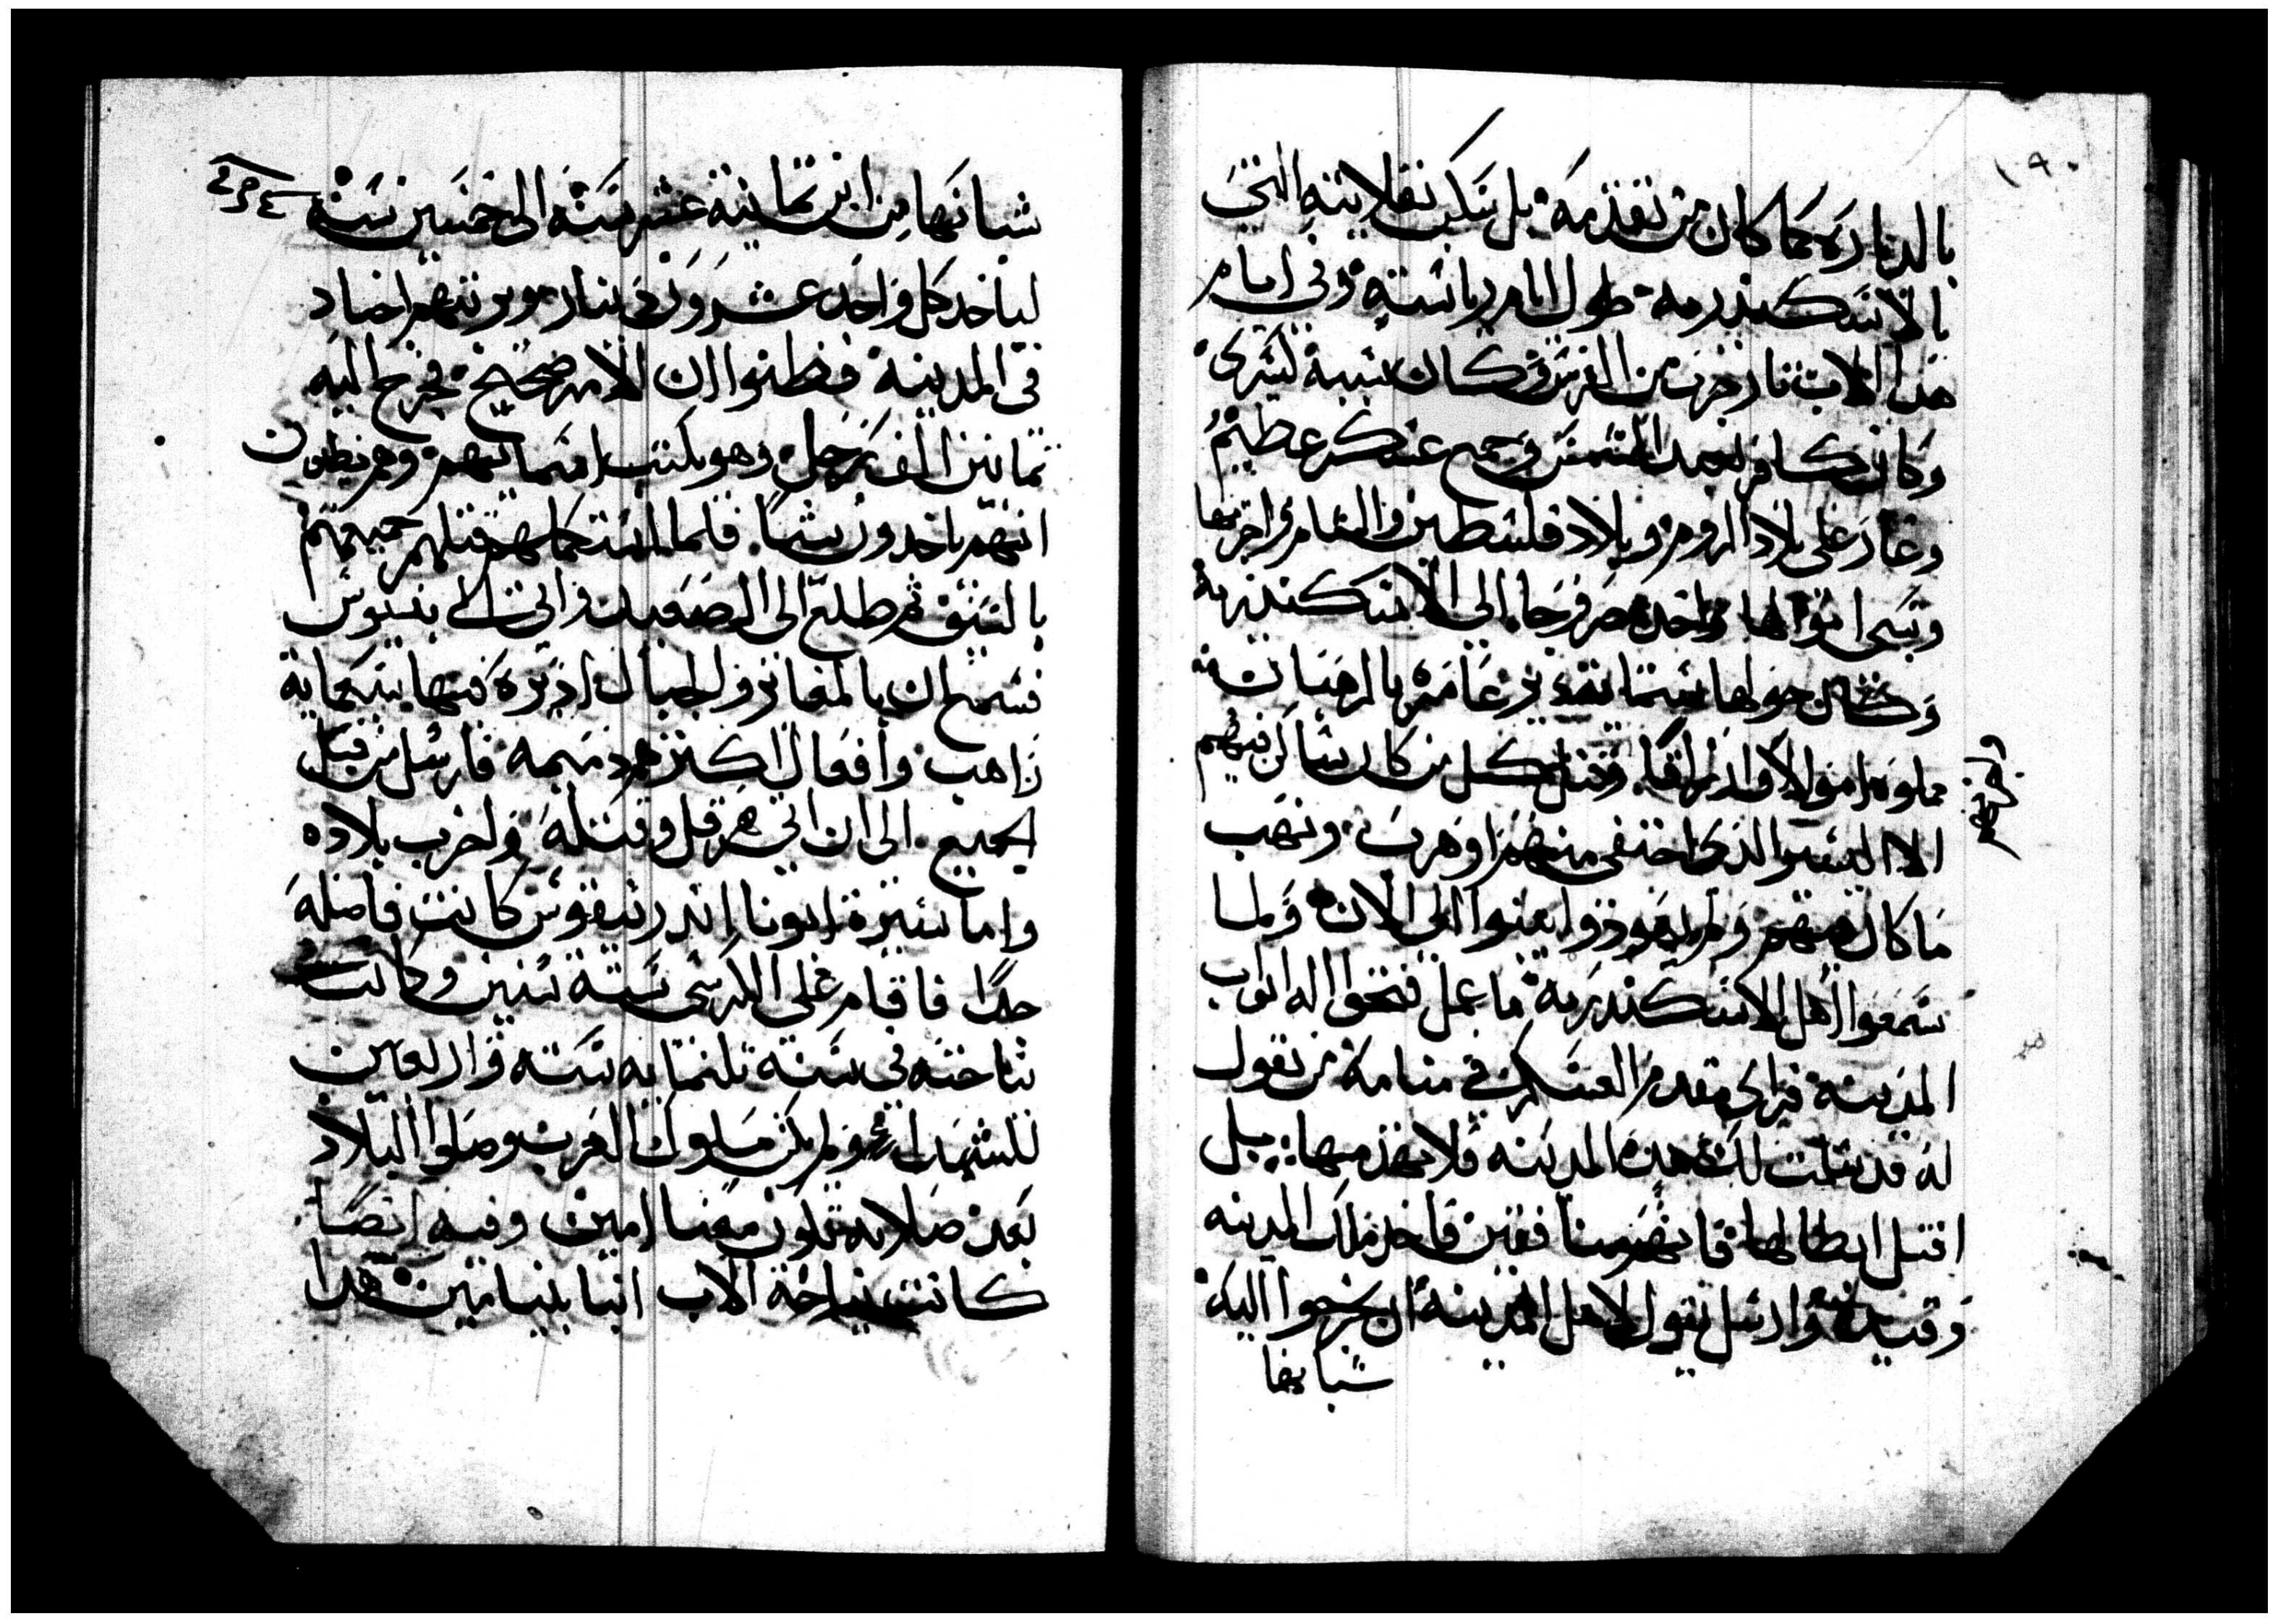 بالدياره كما كان من تقدمه بل سكن بقلايته التى
بالاسكندريه طول ايام رياسته وفى ايام
هذا الاب ثار حرب من الفرس وكان بسببه كسرى
وكان كافر يعبد الشمس وجمع عسكر عظيم
وغار على بلاد الروم وبلاد فلسطين والشام واخربها
وسبى اموالها واخد مصر وجا الى الاسكندريه
وكان حولها ستمايه دير عامره بالرهبان
مملوه اموالا وارزاقا وقتل كل من كان ساكن فيهم
الا اليسير الذى اختفى منهم او هرب ونهب
ما كان فيهم ولم يعودوا يبنوا الى الان ولما
سمعوا اهل الاسكندريه ما عمل فتحوا له ابواب
المدينه فراى مقدم العسكر فى منامه من يقول
له قد سلمت لك هذه المدينه فلا تهدمها بل
اقتل ابطالها فانهم منافقين فاخد ملك المدينه
وقيده وارسل يقول لاهل المدينه ان يخرجوا اليه
شبابها
شبابها من ابن ثمانية عشر سنه الى خمسين سنه
لياخد كل واحد عشرون دينار ويرتبهم اجناد
فى المدينه فظنوا ان الامر صحيح فخرج اليه
ثمانين الف رجل وهو يكتب اسمايهم وهم يظنون
انهم ياخدون شيا فلما استكملهم قتلهم جميعهم
بالسيف ثم طلع الى الصعيد واتى الى بنيوس
فسمع ان بالمغاير والجبال اديره فيها سبعماية
راهب وافعال اكثرهم دميمه فارسل من قتل
الجميع الى ان اتى هرقل وقتله واخرب بلاده
واما سيرة ابونا اندرنيقوس كانت فاضله
جدا فاقام على الكرسى ستة سنين وكانت
نياحته فى سنة تلتمايه سته واربعين
للشهدا ولم يكن ملوك العرب وصلوا البلاد
بعد صلاته تكون معنا امين وفيه ايضا
كانت نياحة الاب انبا بنيامين هذا